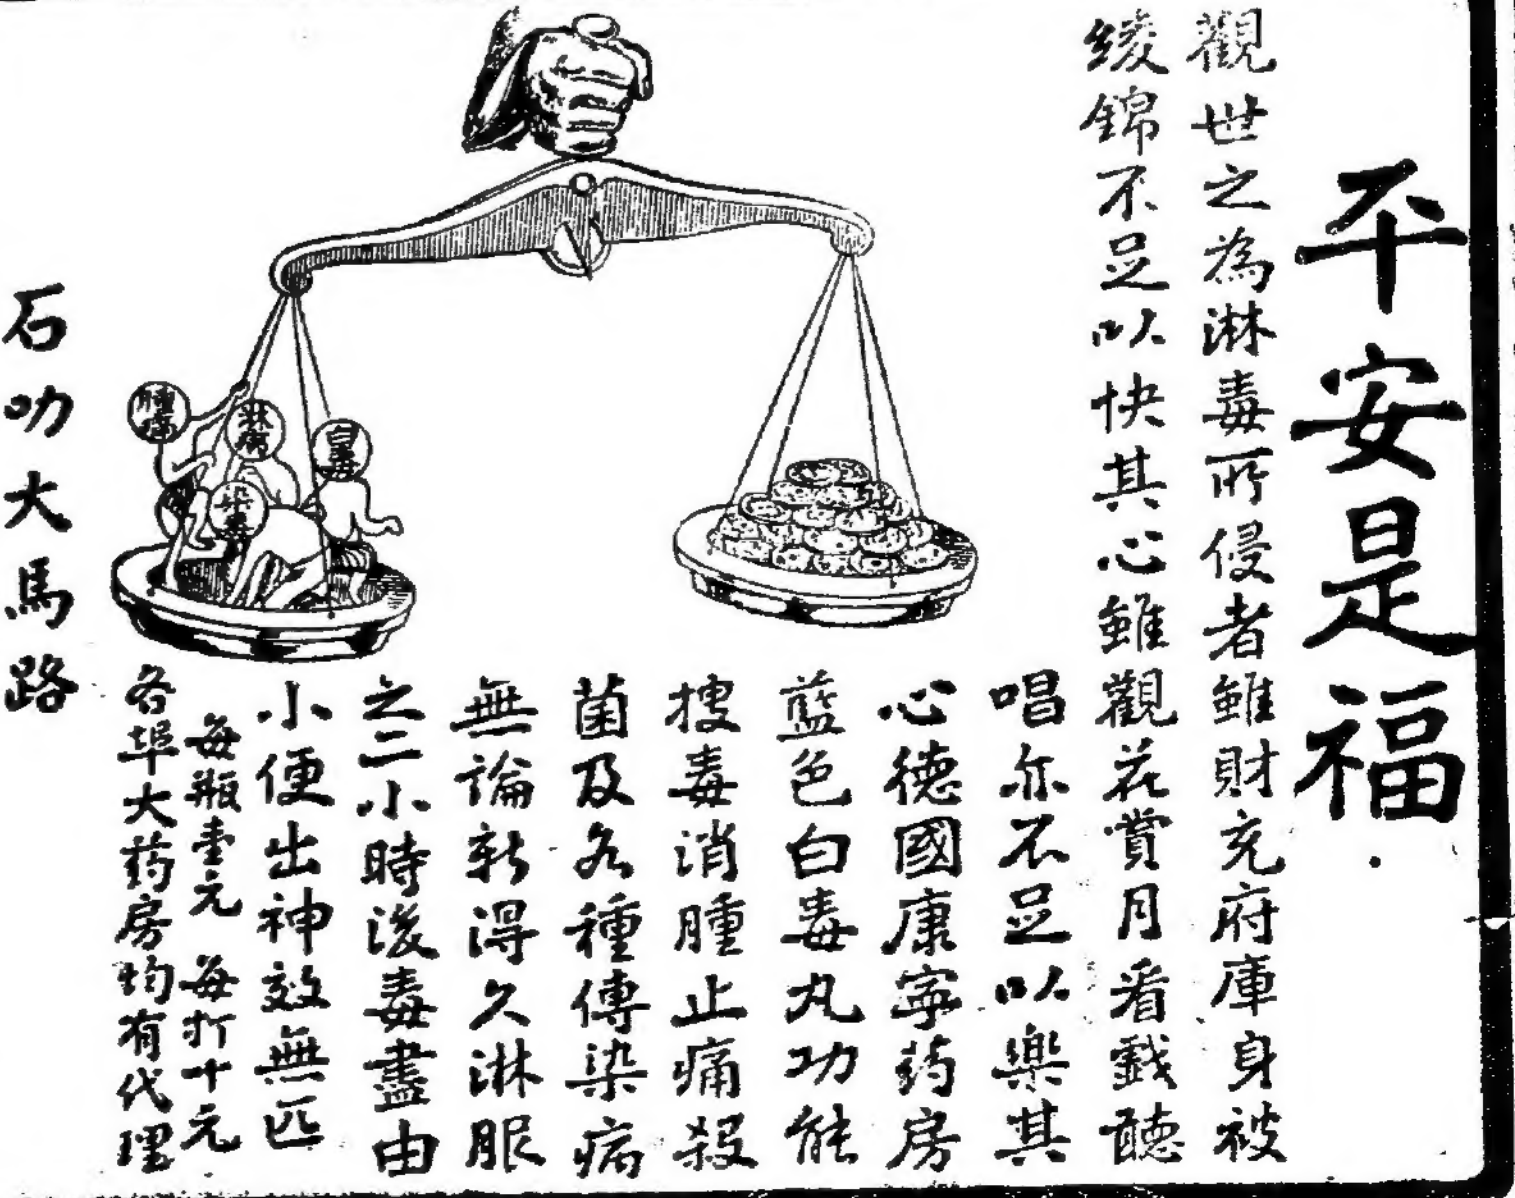 平安是福
觀世之為淋毒所侵者雖財充府庫身被
綾錦不足以快其心雖觀花賞月看戲聽
唱亦不足以樂其
心德國康寧药房
藍色白毒丸功能
搜毒消腫止痛殺
菌及各種傳染病
無論新得久淋服
之二小時後毒盡由
小便出神效無匹
每瓶壹元 每打十元
各埠大药房均有代理
石叻大馬路
腫痛
淋病
白毒
染毒